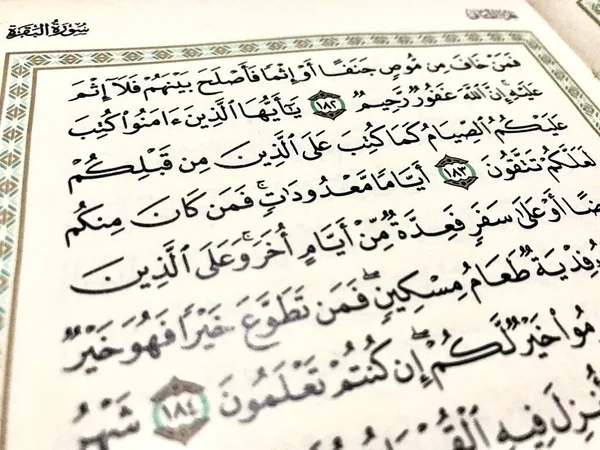 سُورَةُ البَقَرَةِ
فَمَنْ خَافَ مِن مُّوصٍ جَنَفًا أَوْ إِثْمًا فَأَصْلَحَ بَيْنَهُمْ فَلَآ إِثْمَ
عَلَيْهِ إِنَّ ٱللَّهَ غَفُورٌ رَّحِيمٌ ١٨٢ يَٰٓأَيُّهَا ٱلَّذِينَ ءَامَنُوا۟ كُتِبَ
عَلَيْكُمُ ٱلصِّيَامُ كَمَا كُتِبَ عَلَى ٱلَّذِينَ مِن قَبْلِكُمْ
لَعَلَّكُمْ تَتَّقُونَ ١٨٣ أَيَّامًا مَّعْدُودَٰتٍ ۚ فَمَن كَانَ مِنكُم
أَوْ عَلَىٰ سَفَرٍ فَعِدَّةٌ مِّنْ أَيَّامٍ أُخَرَ ۚ وَعَلَى ٱلَّذِينَ
فِدْيَةٌ طَعَامُ مِسْكِينٍ ۖ فَمَن تَطَوَّعَ خَيْرًا فَهُوَ خَيْرٌ
خَيْرٌ لَّكُمْ ۖ إِن كُنتُمْ تَعْلَمُونَ ١٨٤ شَهْرُ
أُنزِلَ فِيهِ